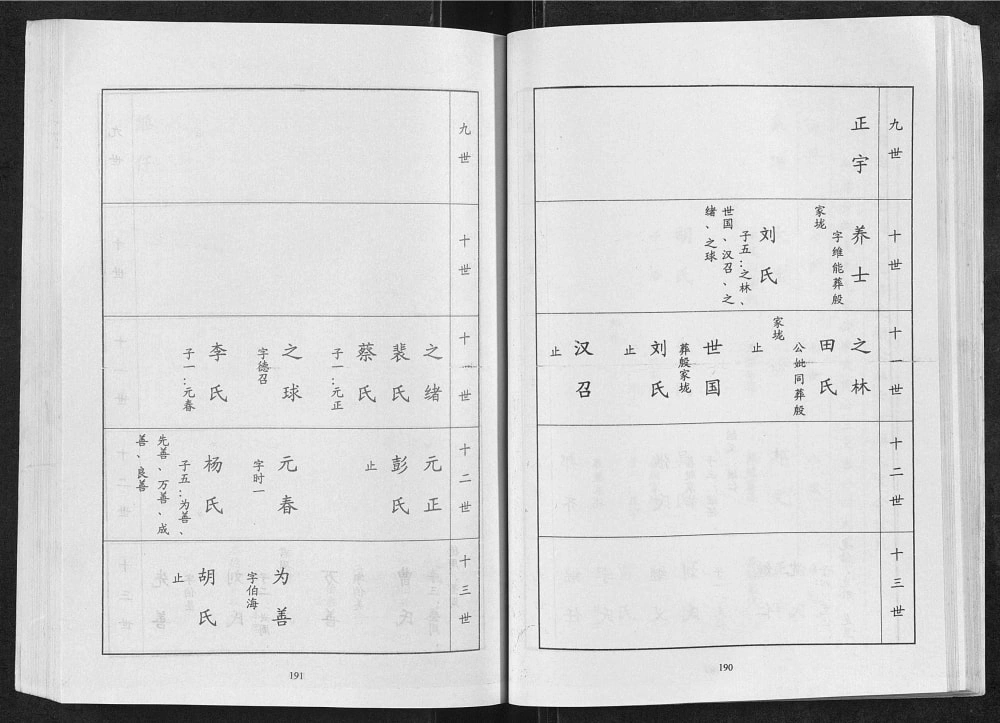 九世
正宇
十世
养士
字维能葬殷
家垅
刘氏
子五:之林、
世国、汉召、之
绪、之球
十一世
之林
田氏
公妣同葬殷
家垅
止
世国
葬殷家垅
刘氏
止
汉召
止
十二世
十三世
190
九世
十世
十一世
之绪
裴氏
蔡氏
子一:元正
之球
字德召
李氏
子一:元春
十二世
元正
彭氏
止
元春
字时一
杨氏
子五:为善、
先善、万善、成
善、良善
十三世
为善
字伯海
胡氏
止
191